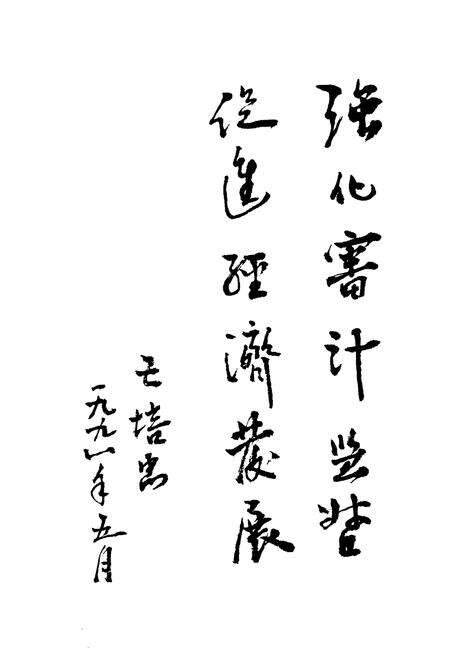 强化審計监督
促進經濟發展
培忠
一九九年五月